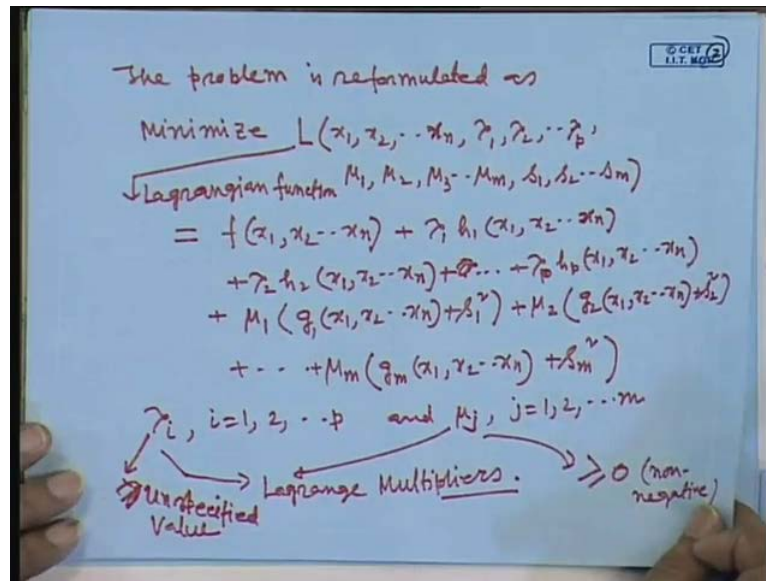 © CET
I.I.T. KGP
2
The problem is reformulated as
Minimize L(x₁, x₂, ‥ xₙ, λ₁, λ₂, ‥ λₚ,
Lagrangian function μ₁, μ₂, μ₃ ‥ μₘ, s₁, s₂ ‥ sₘ)
= f(x₁, x₂ ‥ xₙ) + λ₁ h₁ (x₁, x₂ ‥ xₙ)
+ λ₂ h₂ (x₁, x₂ ‥ xₙ) + ‥ + λₚ hₚ (x₁, x₂ ‥ xₙ)
+ μ₁ (g₁(x₁, x₂ ‥ xₙ) + s₁²) + μ₂ (g₂(x₁, x₂ ‥ xₙ) + s₂²)
+ ‥ + μₘ (gₘ(x₁, x₂ ‥ xₙ) + sₘ²)
λᵢ, i=1, 2, ‥ p and μⱼ, j=1, 2, ‥ m
Unspecified Lagrange Multipliers. ≥ 0 (non-
Value negative)